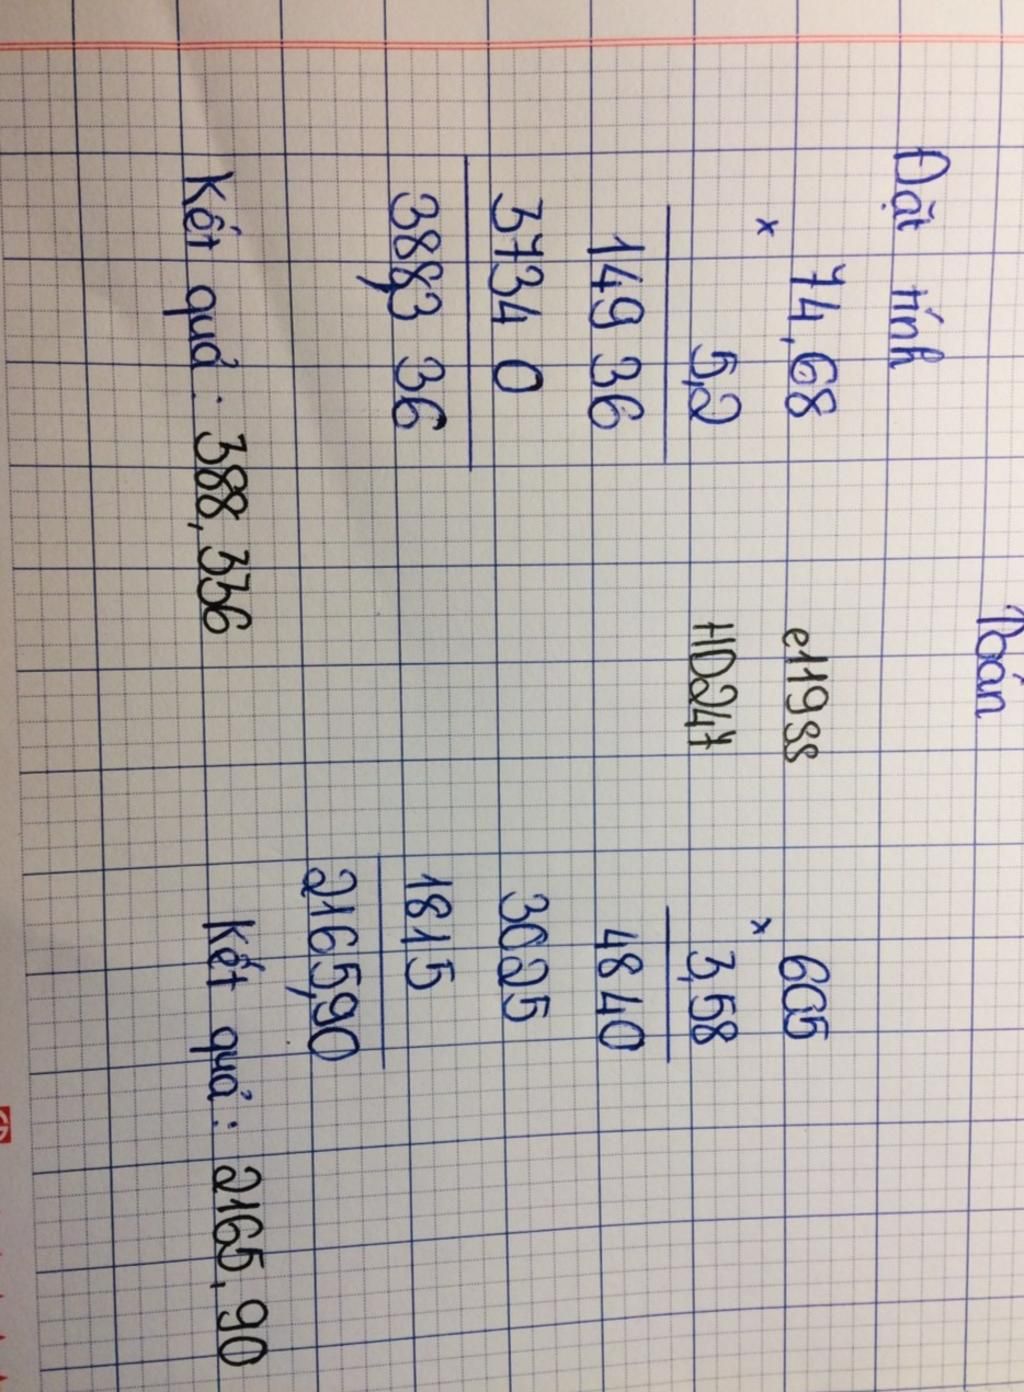 Toán
Đặt tính
74,68
x
5,2
149 36
3734 0
388,3 36
Kết quả: 388,336
e119ss
HD247
605
x
3,58
4840
3025
1815
2165,90
Kết quả: 2165,90